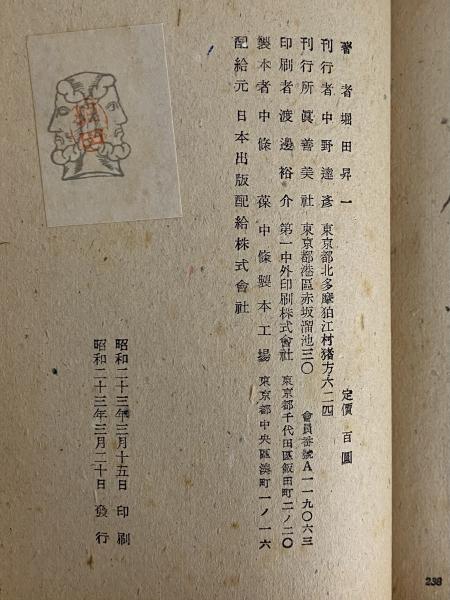 著者 堀田昇一
定價 百圓
刊行者 中野達彦 東京都北多摩狛江村猪方六二四
刊行所 眞善美社 東京都港區赤坂溜池三〇 會員番號A一一九〇六三
印刷者 渡邊裕介 第一中外印刷株式會社 東京都千代田區飯田町二ノ二〇
製本者 中條葆 中條製本工場 東京都中央區湊町一ノ一六
配給元 日本出版配給株式會社
昭和二十三年三月十五日 印刷
昭和二十三年三月二十日 發行
堀田
238